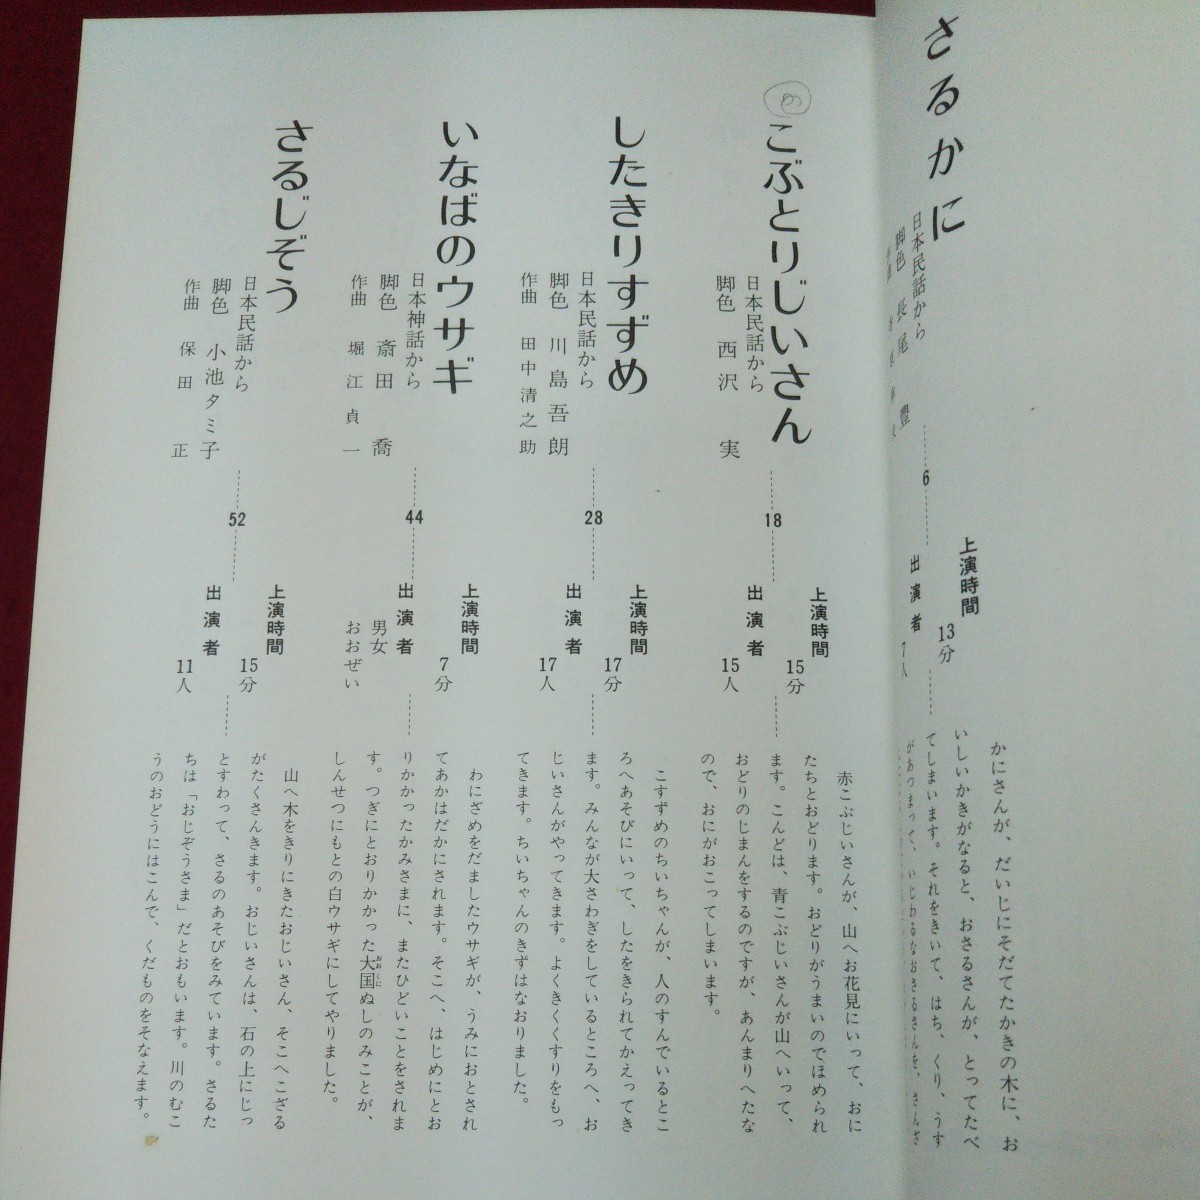 さるかに
日本民話から
脚色 長尾 豊
6
上演時間
13分
出演者
7人
かにさんが、だいじにそだてたかきの木に、お
いしいかきがなると、おさるさんが、とってたべ
てしまいます。それをきいて、はち、くり、うす
があつまって、いじわるなおさるさんを、さんざ
の
こぶとりじいさん
日本民話から
脚色 西沢 実
18
上演時間
15分
出演者
15人
赤こぶじいさんが、山へお花見にいって、おに
たちとおどります。おどりがうまいのでほめられ
ます。こんどは、青こぶじいさんが山へいって、
おどりのじまんをするのですが、あんまりへたな
ので、おにがおこってしまいます。
したきりすずめ
日本民話から
脚色 川島吾朗
作曲 田中清之助
28
上演時間
17分
出演者
17人
こすずめのちいちゃんが、人のすんでいるとこ
ろへあそびにいって、したをきられてかえってき
ます。みんなが大さわぎをしているところへ、お
じいさんがやってきます。よくきくくすりをもっ
てきます。ちいちゃんのきずはなおりました。
いなばのウサギ
日本神話から
脚色 斎田 喬
作曲 堀江貞一
44
上演時間
7分
出演者
男女
おおぜい
わにざめをだましたウサギが、うみにおとされ
てあかはだかにされます。そこへ、はじめにとお
りかかったかみさまに、またひどいことをされま
す。つぎにとおりかかった大国ぬしのみことが、
おおくに
しんせつにもとの白ウサギにしてやりました。
さるじぞう
日本民話から
脚色 小池タミ子
作曲 保田 正
52
上演時間
15分
出演者
11人
山へ木をきりにきたおじいさん、そこへこざる
がたくさんきます。おじいさんは、石の上にじっ
とすわって、さるのあそびをみています。さるた
ちは「おじぞうさま」だとおもいます。川のむこ
うのおどうにはこんで、くだものをそなえます。